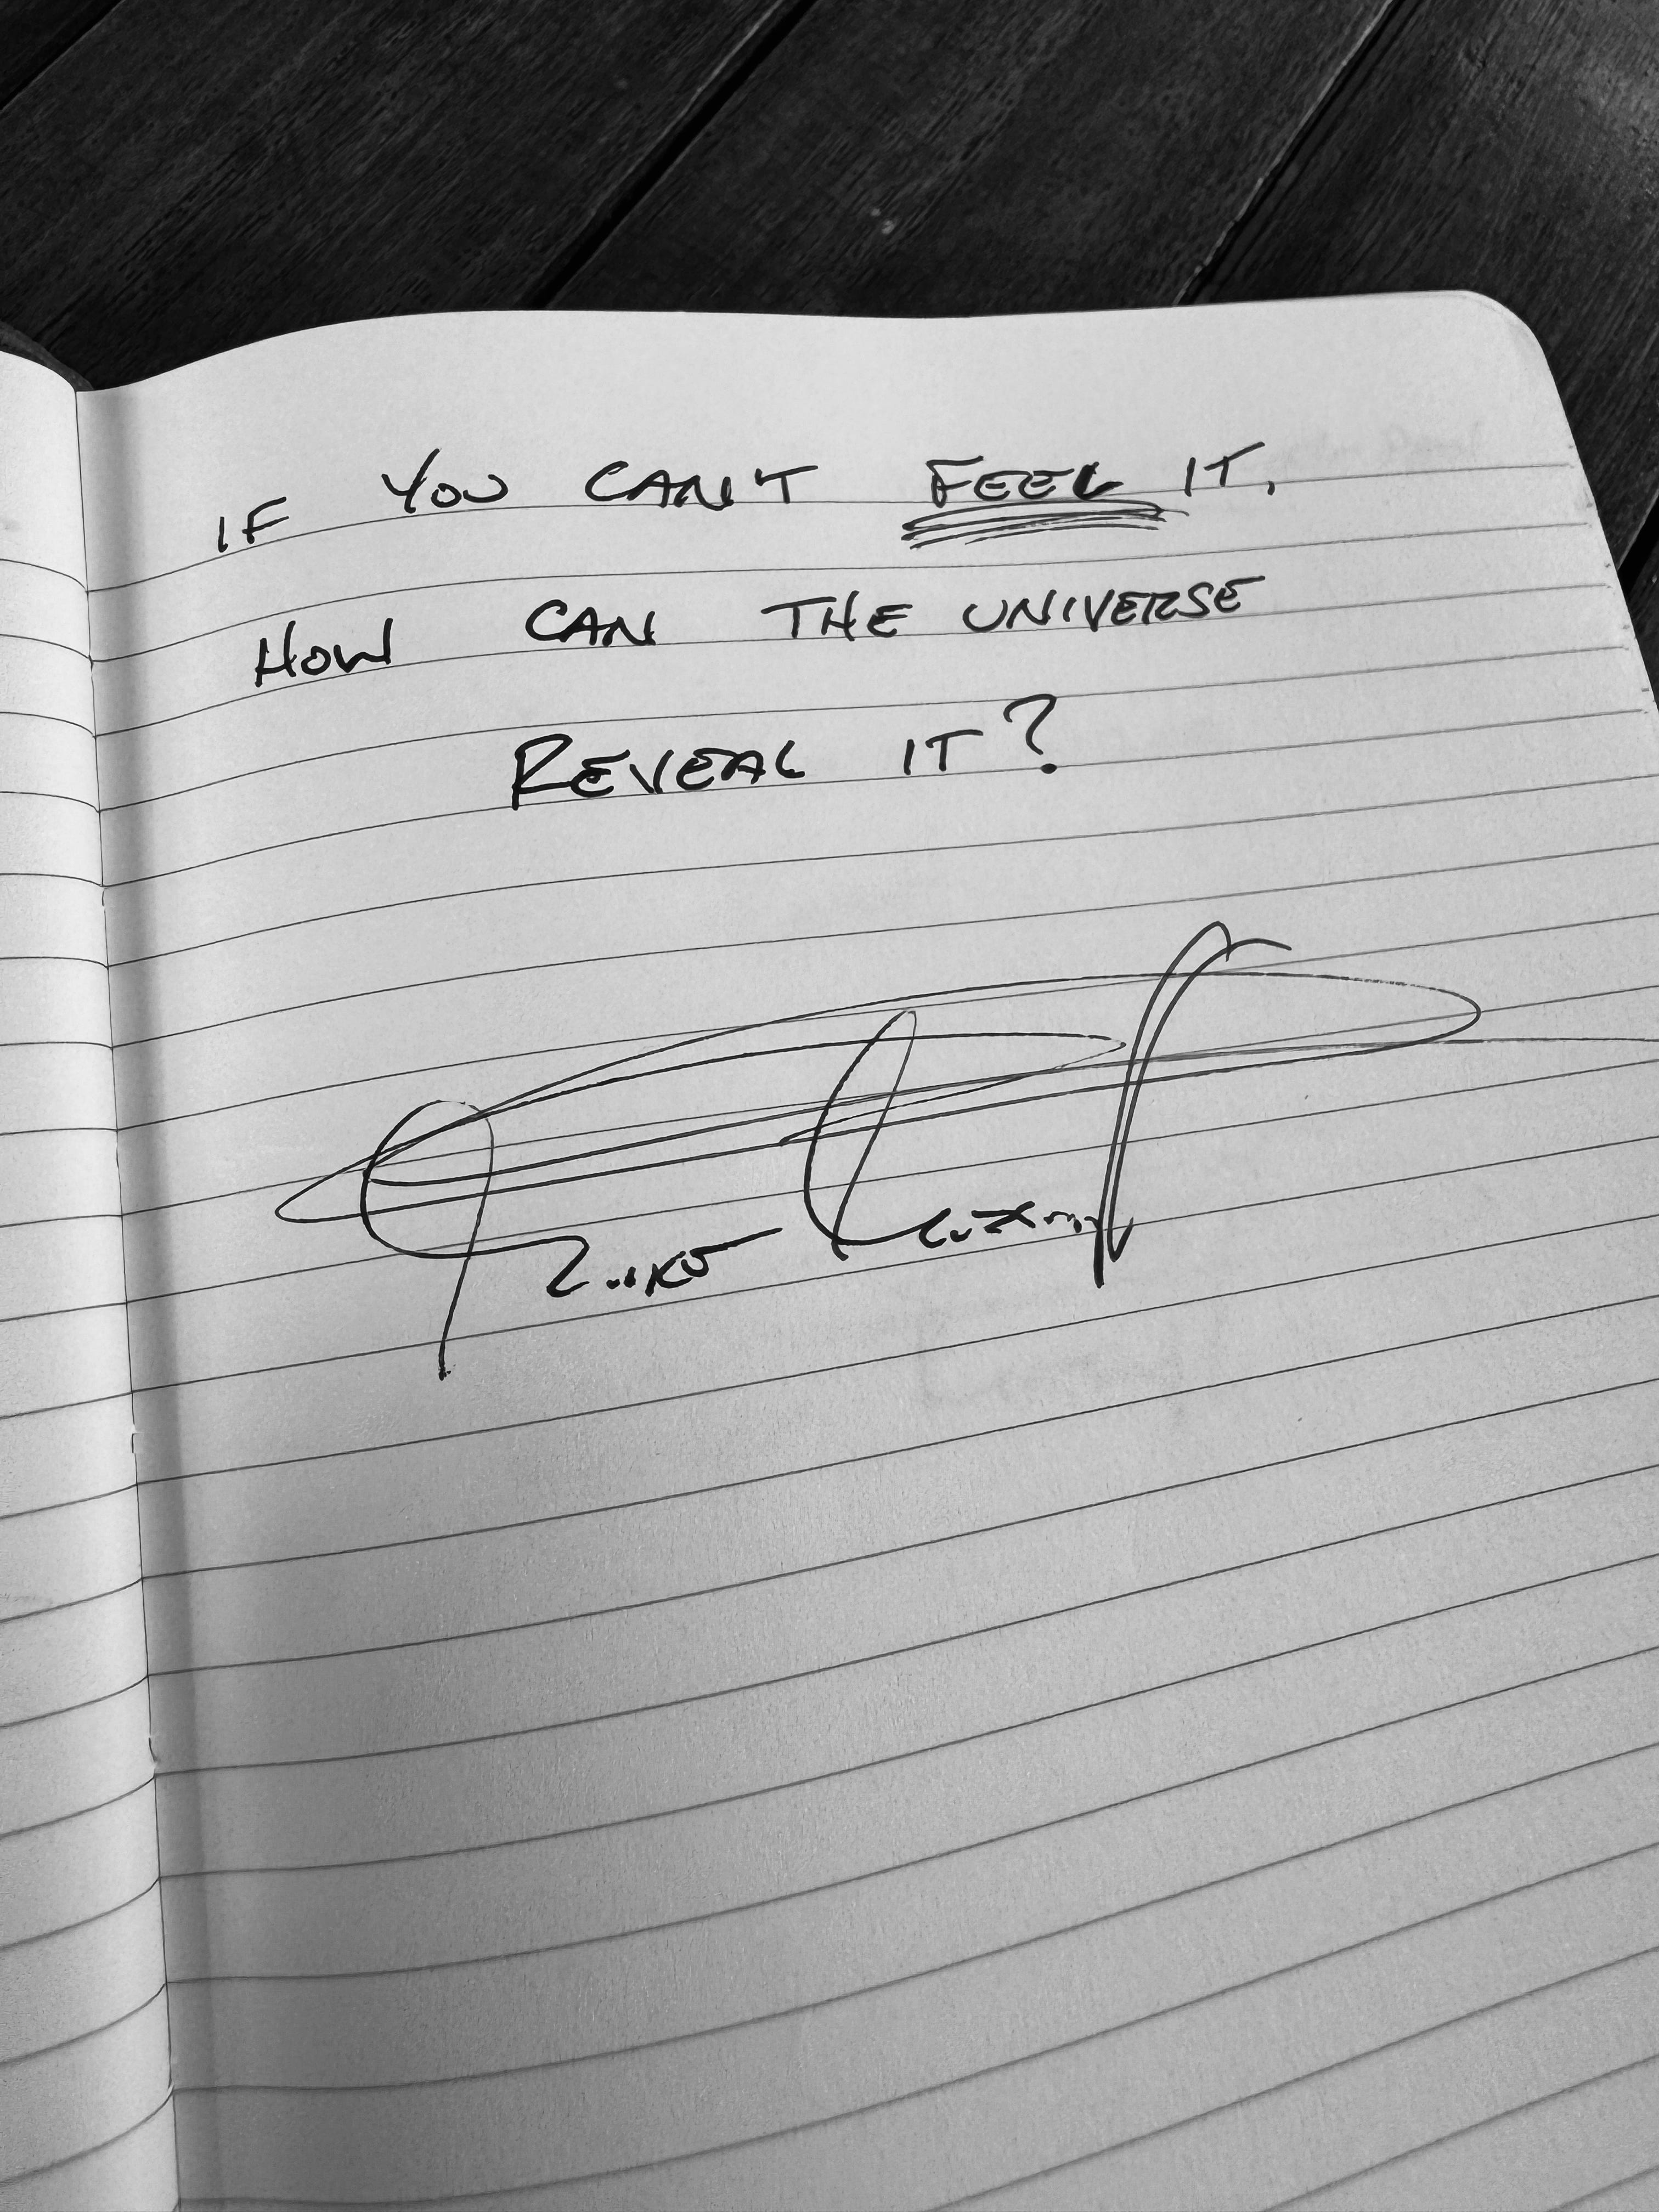 IF YOU CAN'T FEEL IT,
HOW CAN THE UNIVERSE
REVEAL IT?